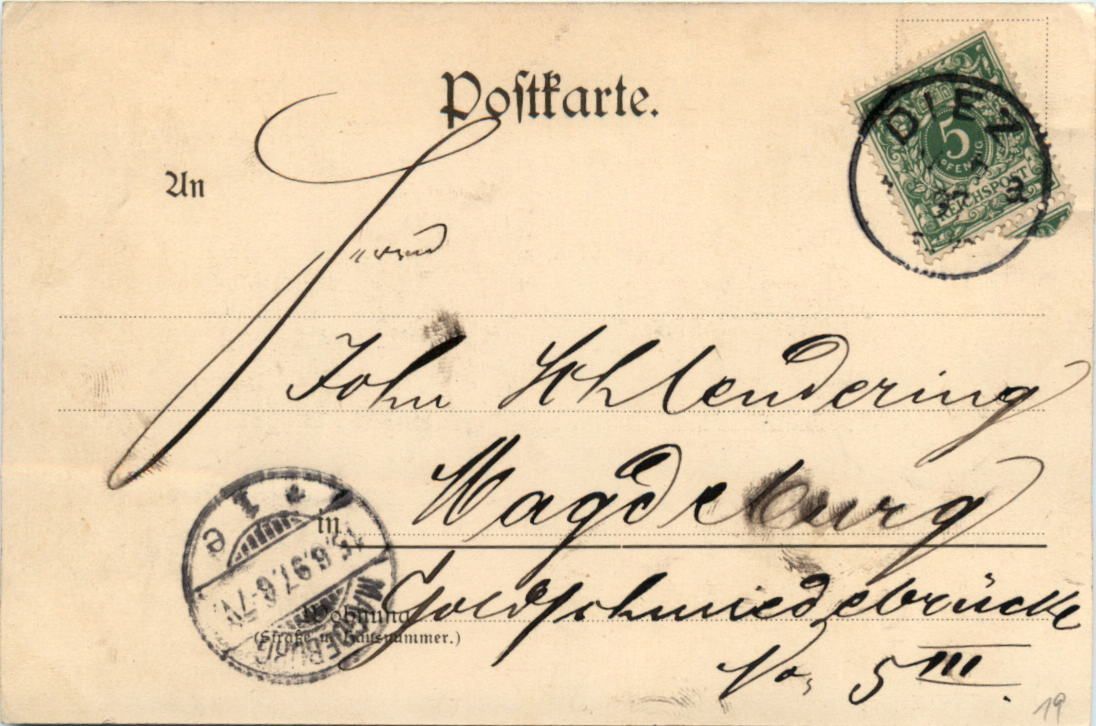 Postkarte.
DIEZ
5
PFENNIG
REICHSPOST
An
Herrn
John Schlendering
Magdeburg
in
Goldschmiedebrücke
Wohnung
(Straße u. Hausnummer.)
No. 5 III.
MAGDEBURG
16.6.97.6-7V.
* 1 e
19